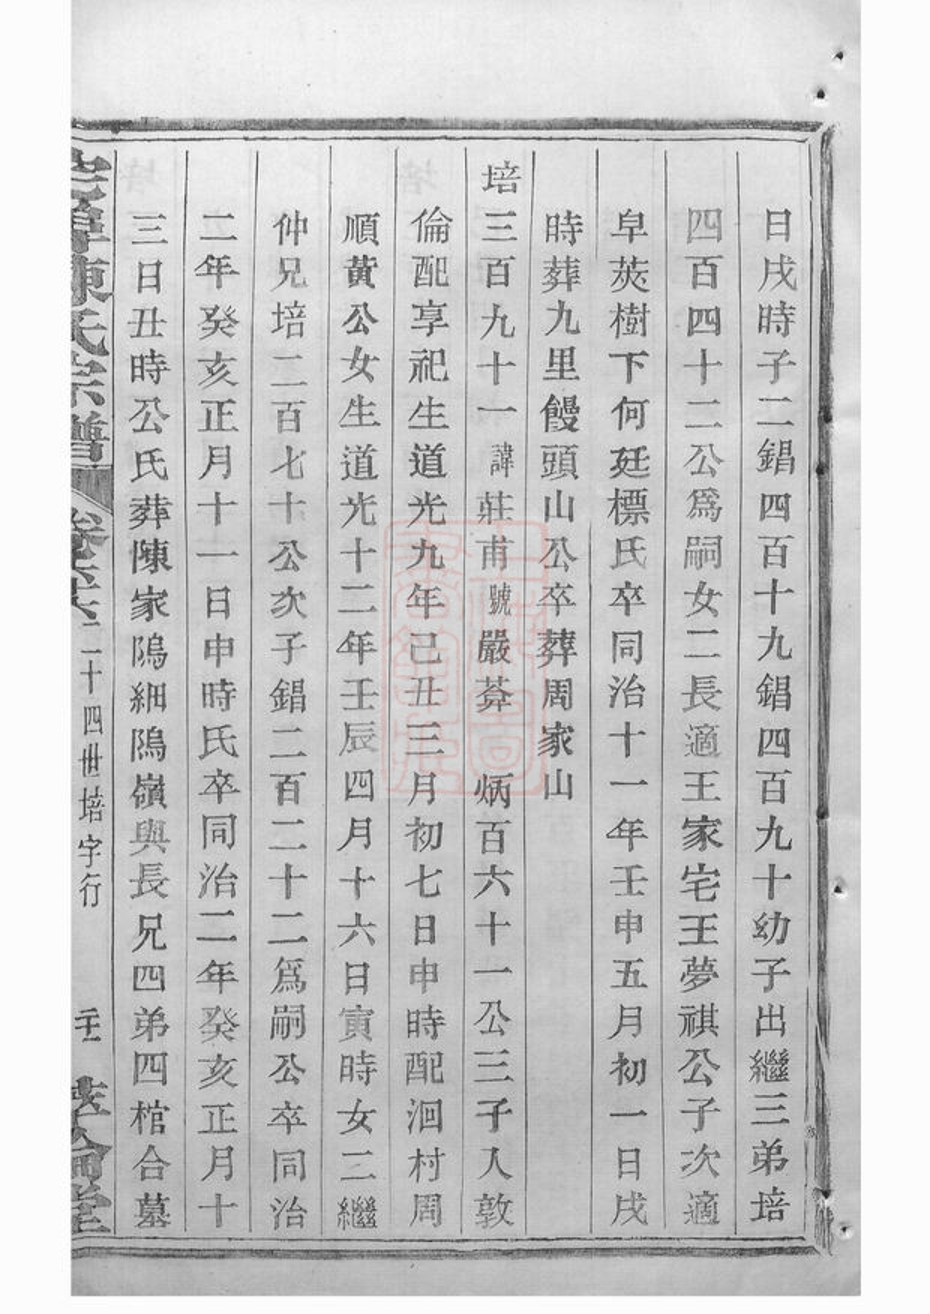 日戌時子二錩四百十九錩四百九十幼子出繼三弟培
四百四十二公爲嗣女二長適王家宅王夢祺公子次適
皁莢樹下何廷標氏卒同治十一年壬申五月初一日戌
時葬九里饅頭山公卒葬周家山
培三百九十一諱莊甫號嚴莽炳百六十一公三子入敦
倫配享祀生道光九年己丑三月初七日申時配洄村周
順黃公女生道光十二年壬辰四月十六日寅時女二繼
仲兄培二百七十公次子錩二百二十二爲嗣公卒同治
二年癸亥正月十一日申時氏卒同治二年癸亥正月十
三日丑時公氏葬陳家隖細隖嶺與長兄四弟四棺合墓
陳氏宗譜 卷六 二十四世培字行